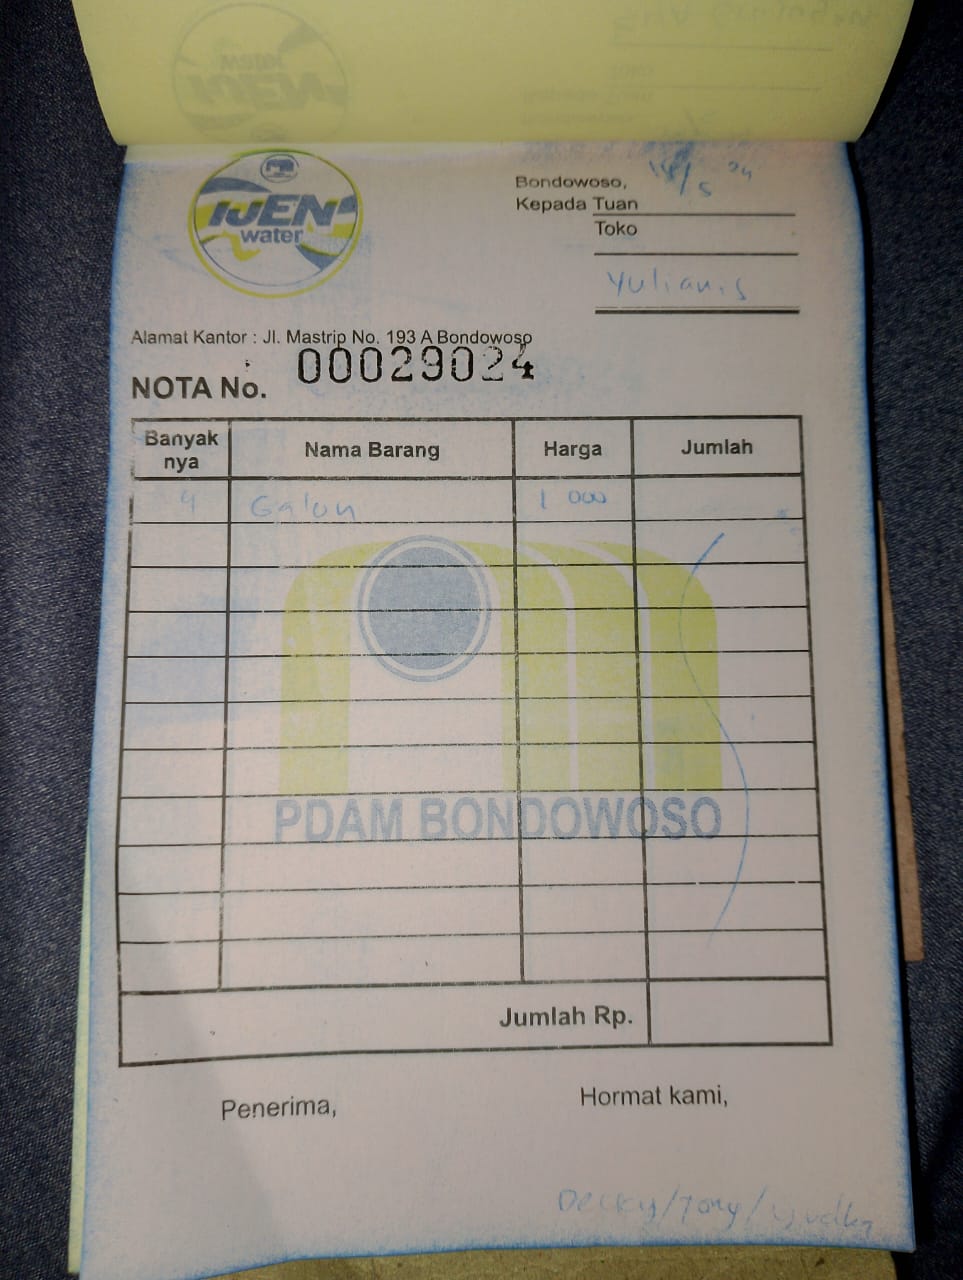 IJEN
water
Bondowoso, 14/5 24
Kepada Tuan
Toko
Yulianis
Alamat Kantor : Jl. Mastrip No. 193 A Bondowoso
NOTA No. 00029024
Banyak nya Nama Barang Harga Jumlah
4 Galon 1 000
PDAM BONDOWOSO
Jumlah Rp.
Penerima, Hormat kami,
Decky/Tony/